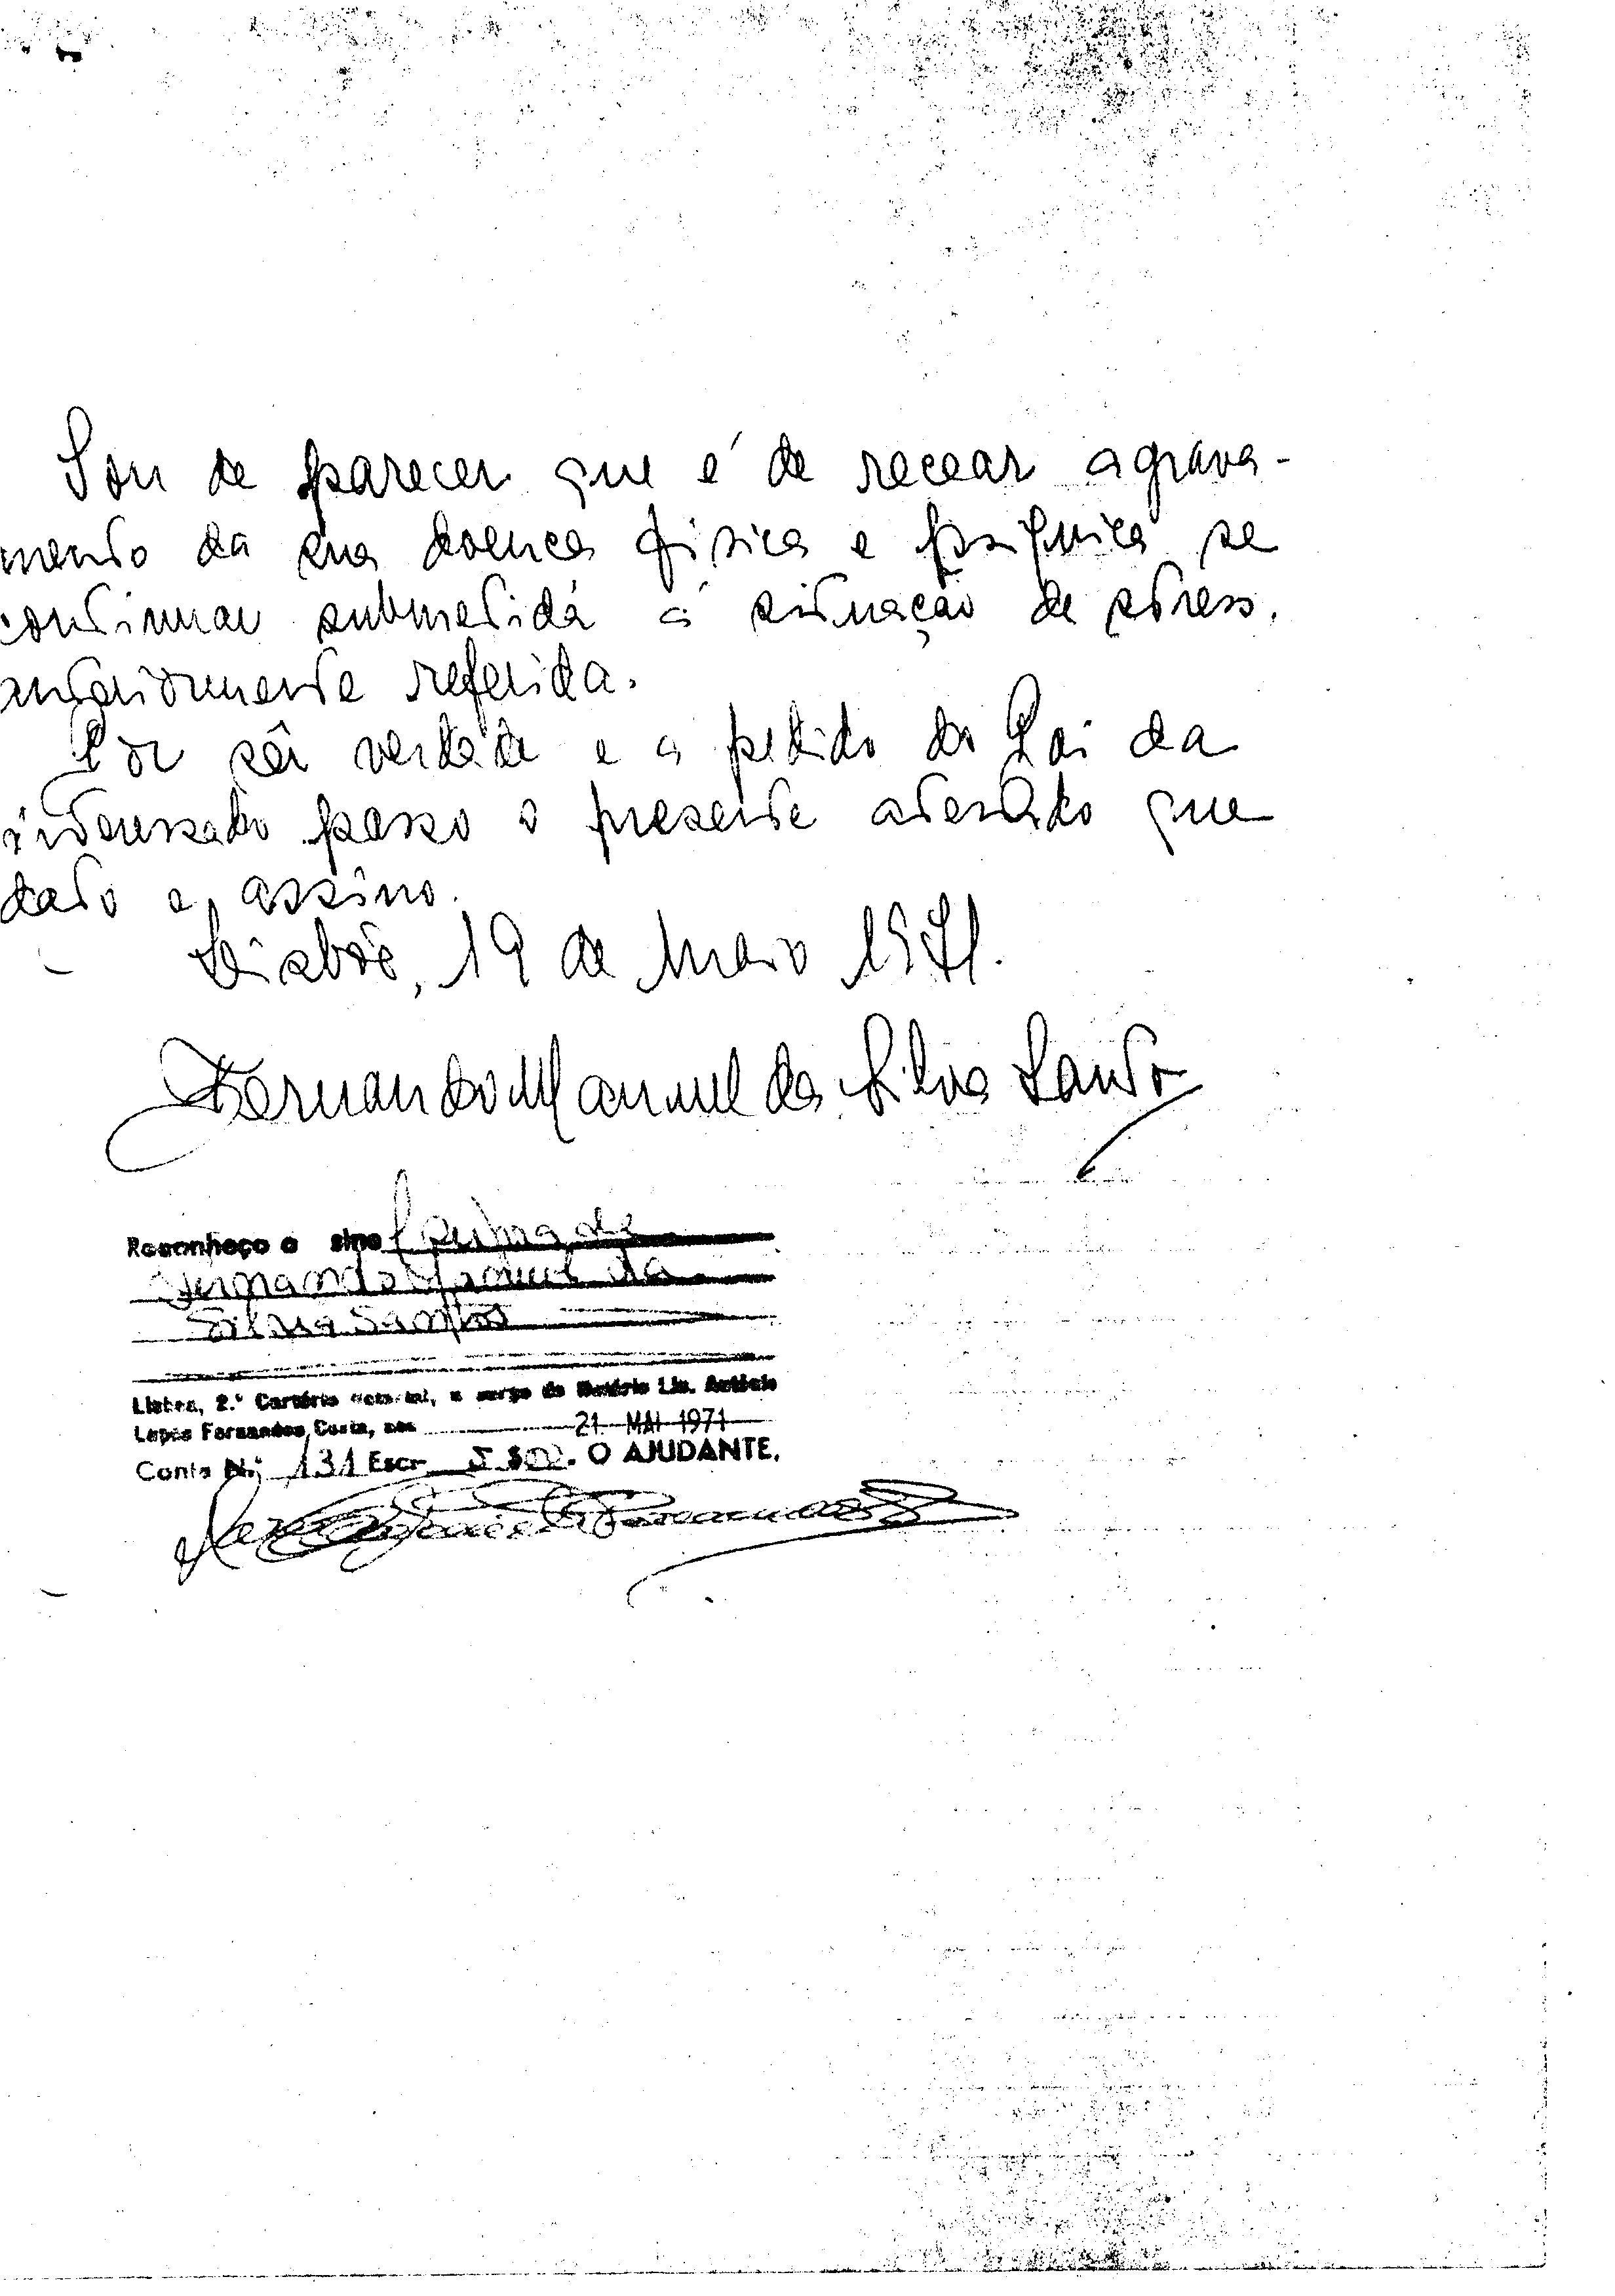 Sou de parecer que é de recear agrava-
mento da sua doença física e psíquica se
continuar submetida à situação de stress,
anteriormente referida.
Por ser verdade e a pedido do Pai da
interessado passo o presente atestado que
dato e assino.
Lisboa, 19 de Maio 1971.
Fernando Manuel da Silva Santos
Reconheço o sinal
Fernando Manuel da
Silva Santos
Lisboa, 2.º Cartório Notarial, a cargo do Notário Lic. António
Lopes Fernandes Costa, aos 21 MAI 1971
Conta N.º 131 Esc. 5$00. O AJUDANTE,